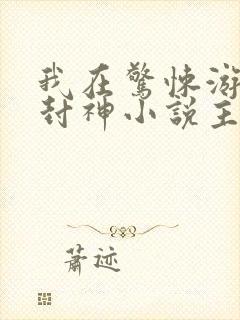 我在驚悚游
封神小説主
蕭迹